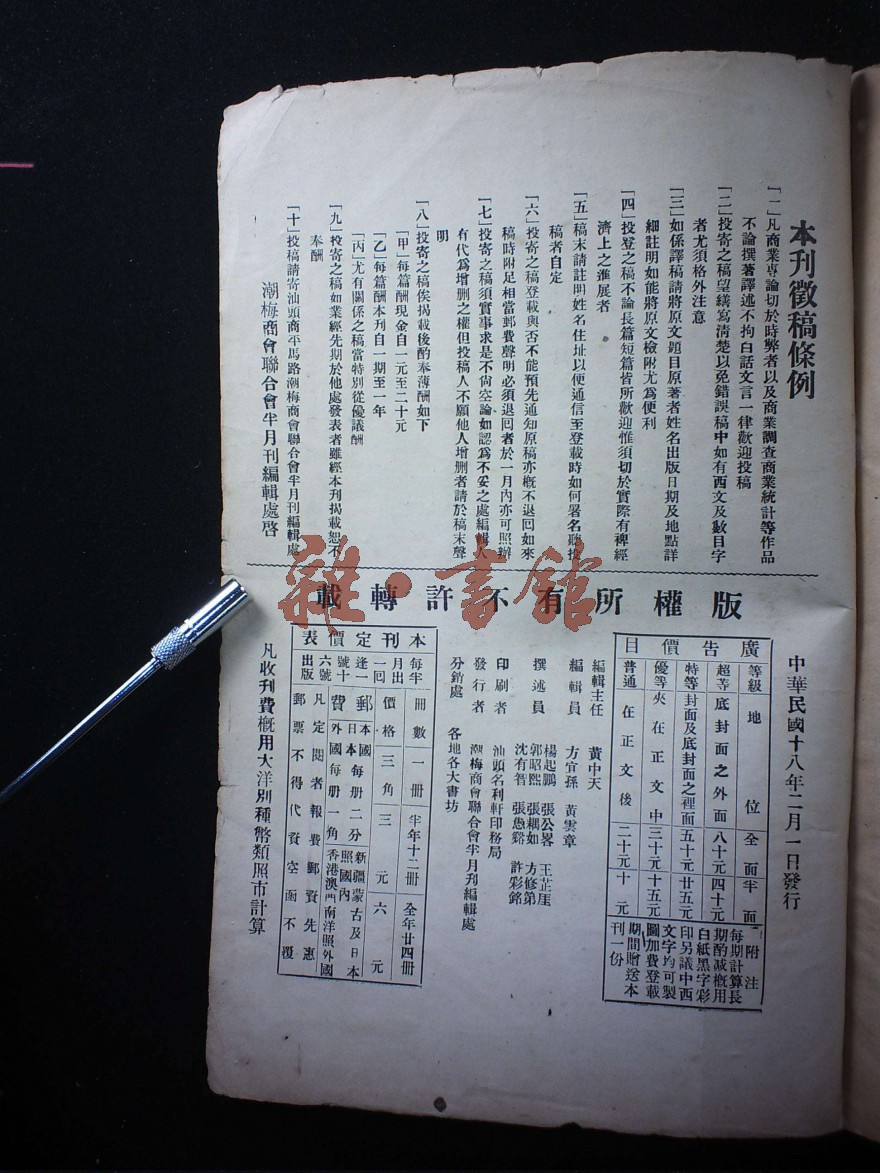 本刊徵稿條例
「一」凡商業專論切於時弊者以及商業調查商業統計等作品
不論撰著譯述不拘白話文言一律歡迎投稿
「二」投寄之稿望繕寫清楚以免錯誤稿中如有西文及數目字
者尤須格外注意
「三」如係譯稿請將原文題目原著者姓名出版日期及地點詳
細註明如能將原文檢附尤爲便利
「四」投登之稿不論長篇短篇皆所歡迎惟須切於實際有裨經
濟上之進展者
「五」稿末請註明姓名住址以便通信至登載時如何署名聽投
稿者自定
「六」投寄之稿登載與否不能預先通知原稿亦槪不退回如來
稿時附足相當郵費聲明必須退回者於一月內亦可照辦
「七」投寄之稿須實事求是不尙空論如認爲不妥之處編輯人
有代爲增删之權但投稿人不願他人增删者請於稿末聲
明
「八」投寄之稿俟揭載後酌奉薄酬如下
「甲」每篇酬現金自一元至二十元
「乙」每篇酬本刊自一期至一年
「丙」尤有關係之稿當特別從優議酬
「九」投寄之稿如業經先期於他處發表者雖經本刊揭載恕不
奉酬
「十」投稿請寄汕頭商平馬路潮梅商會聯合會半月刊編輯處
潮梅商會聯合會半月刊編輯處啓
雜·書館
版權所有不許轉載
中華民國十八年二月一日發行
廣告價目
等級 地位 全面 半面
超等 底封面之外面 八十元 四十元
特等 封面及底封面之裡面 五十元 廿五元
優等 夾在正文中 三十元 十五元
普通 在正文後 二十元 十元
附注
每期計算長
期酌减槪用
白紙黑字彩
印另議中西
文字均可製
圖加費登載
期間贈送本
刊一份
編輯主任 黃中天
編輯員 方宜孫 黃雲章
撰述員 楊起鵬 張公畧 王芷厓
郭昭熙 張耦如 方修第
沈有智 張愚谿 許彩銘
印刷者 汕頭名利軒印務局
發行者 潮梅商會聯合會半月刊編輯處
分銷處 各地各大書坊
本刊定價表
每半月出一回逢一號十六號出版
冊數 一冊 半年十二冊 全年廿四冊
價格 三角 三元 六元
郵費 本國日本每册二分 新疆蒙古及日本照國內
外國每册一角 香港澳門南洋照外國
凡定閱者報費郵資先惠
郵票不得代資空函不覆
凡收刊費槪用大洋別種幣類照市計算